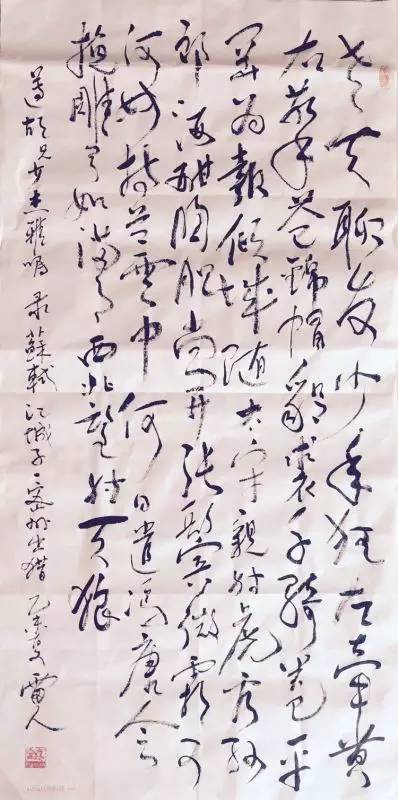 老夫聊发少年狂左牵黄
右擎苍锦帽貂裘千骑卷平
冈为報傾城随太守親射虎看孙
郎酒酣胸胆尚开张鬓微霜又
何妨持节云中何日遣冯唐会
挽雕弓如满月西北望射天狼
遵胡兄女杰雅嘱录蘇軾江城子密州出猎乙未夏雷人